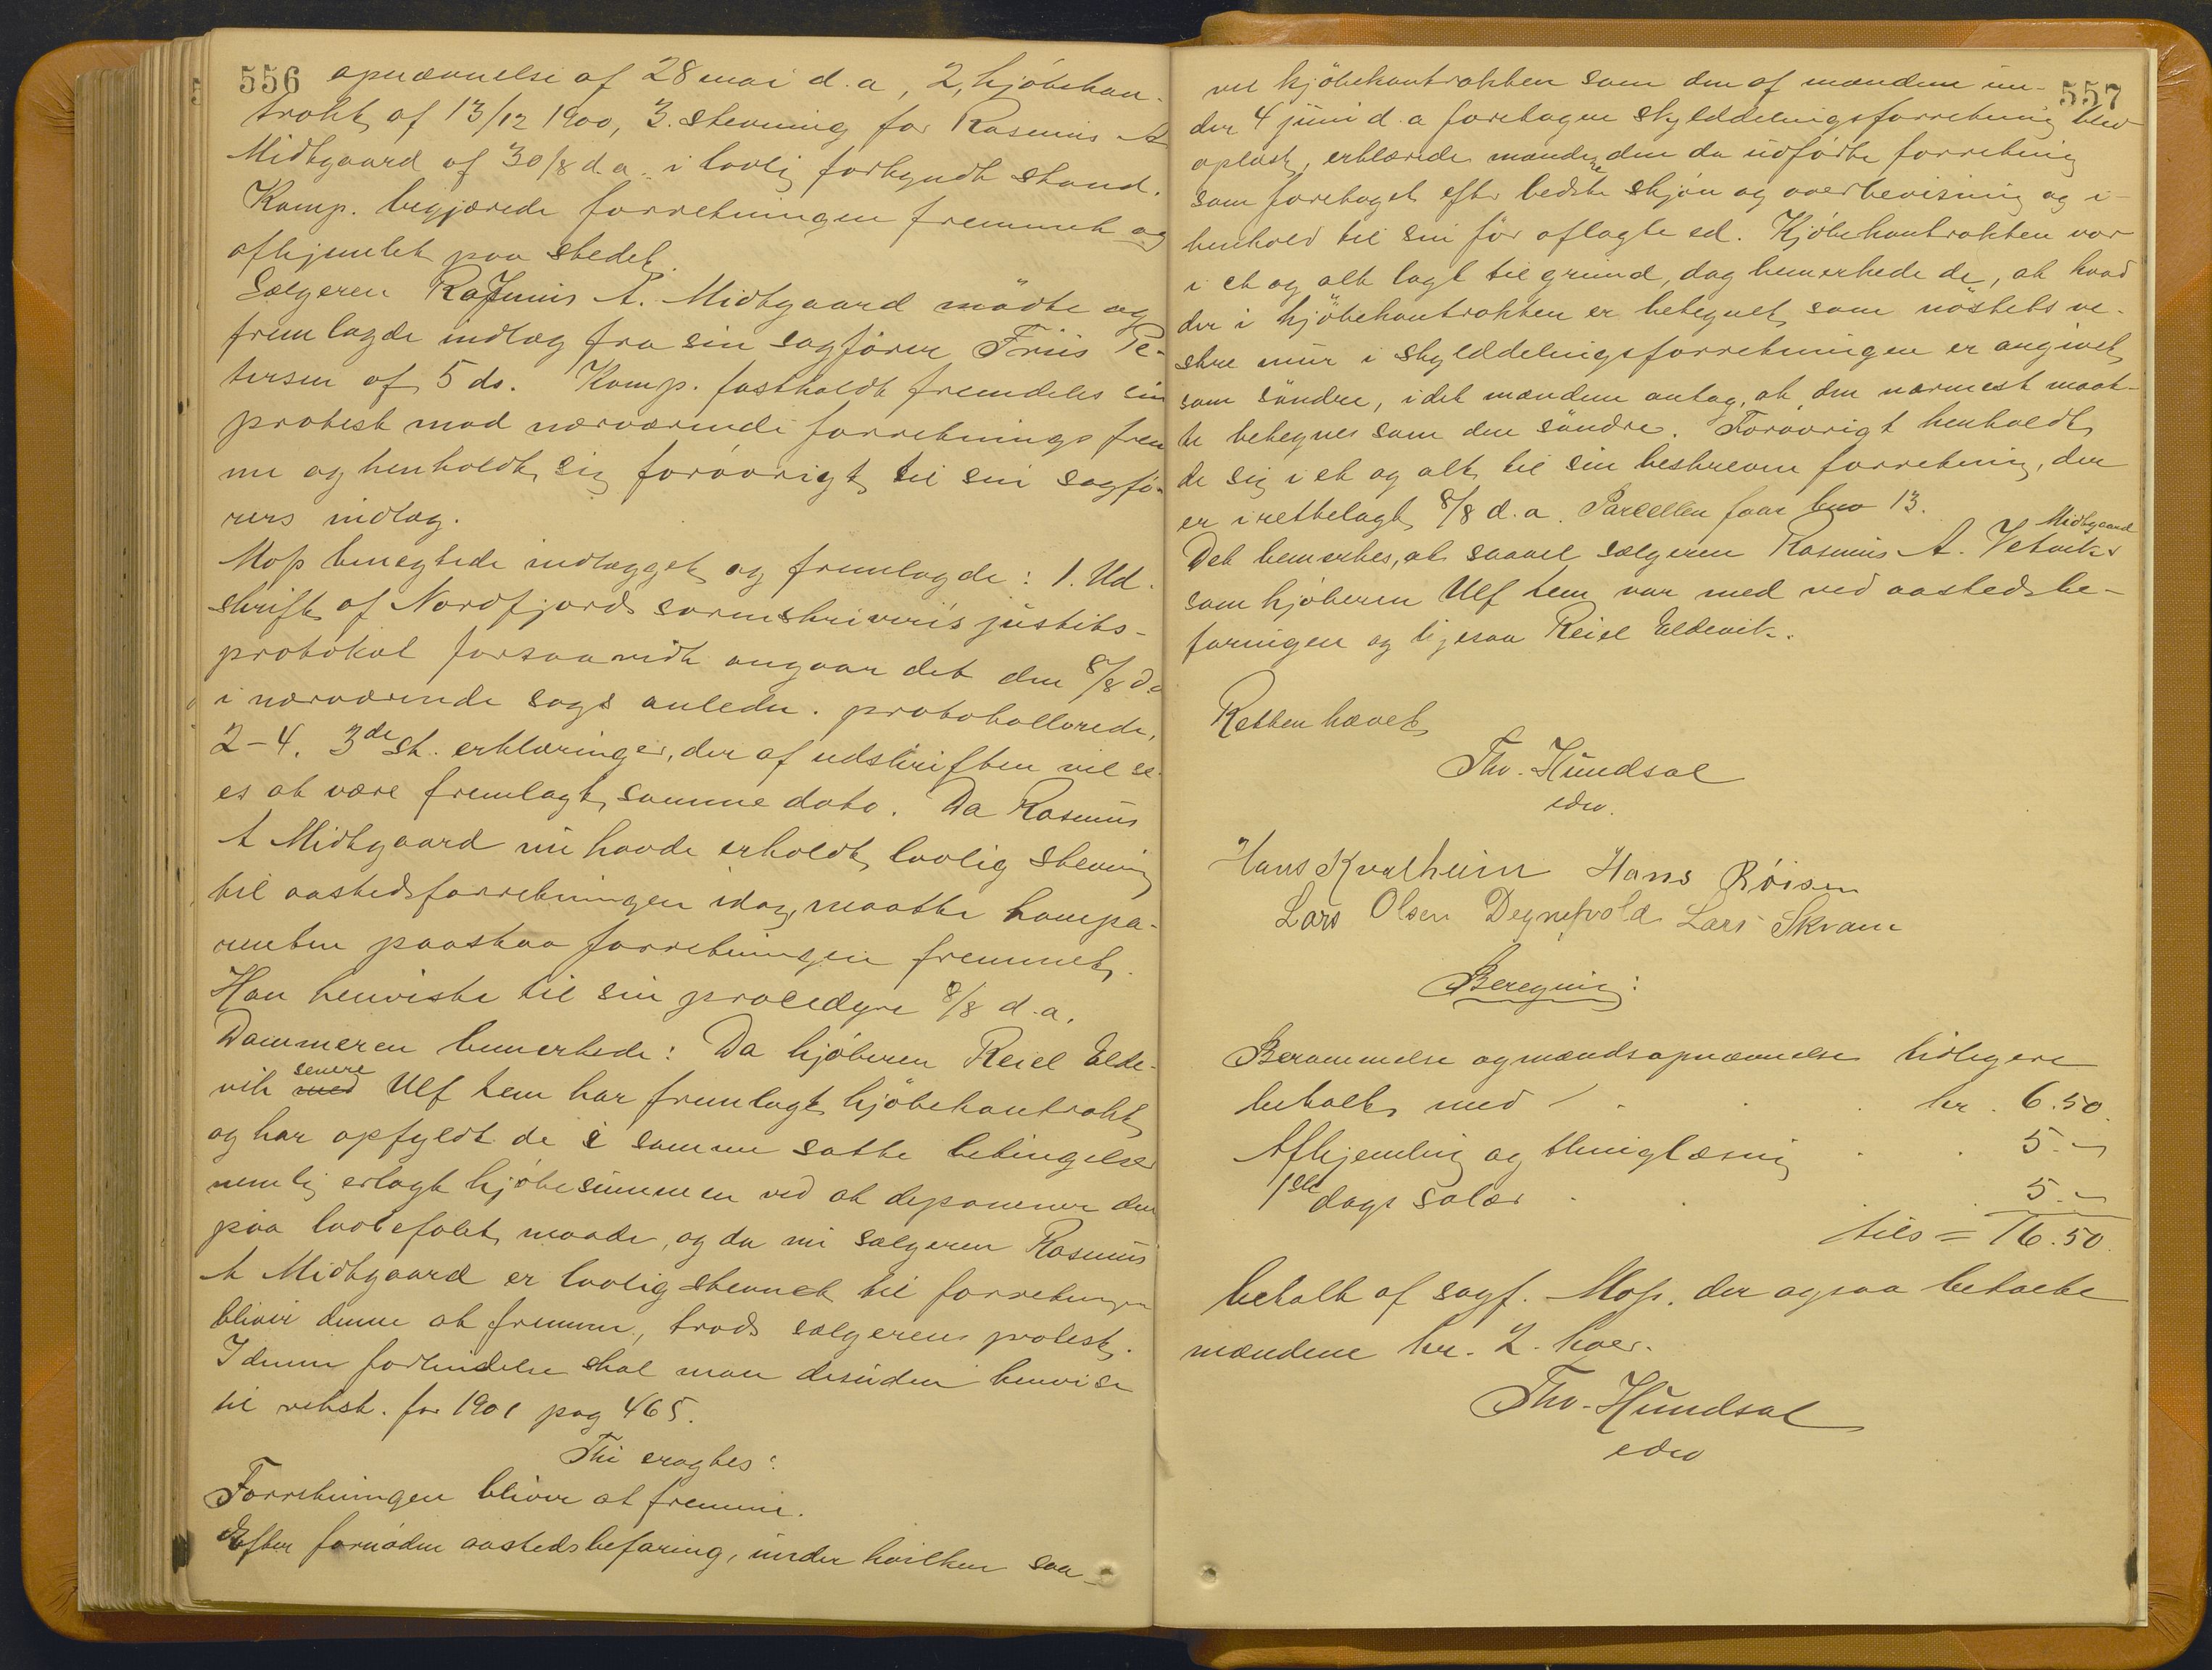 556 opnævnelse af 28 mai d.a, 2, kjöbekon-
trakt af 13/12 1900, 3. stevning for Rasmus A
Midtgaard af 30/8 d.a. i lovlig forkyndt stand.
Komp. begjærede forretningen fremmet og
afhjemlet paa stedet.
Sælgeren Rasmus A. Midtgaard mödte og
fremlagde indlæg fra sin sagförer Friis Pe-
tersen af 5 ds. Komp. fastholdt fremdeles sin
protest mod nærværende forretnings frem
me og henholdt sig forövrigt til sin sagfö-
rers indlæg.
Moss benegtede indlægget og fremlagde: 1. Ud-
skrift af Nordfjords sorenskriveris justits-
protokol forsaavidt angaar det den 8/8 da
i nærværende sags anledn. protokollerede,
2-4. 3de st. erklæringer, der af udskriften vil se-
es at være fremlagt samme dato. Da Rasmus
A Midtgaard nu havde erholdt lovlig stevning
til aastedsforretningen idag, maatte kompa-
renten paastaa forretningen fremmet.
Han henviste til sin procedyre 8/8 d.a.
Dommeren bemerkede: Da kjöberen Reiel Elde-
senere
vik med Ulf tem har fremlagt kjöbekontrakt
og har opfyldt de i samme satte betingelser
nemlig erlagt kjöbesummen ved at deponere den
paa lovbefalet maade, og da nu sælgeren Rasmus
A Midtgaard er lovlig stevnet til forretningen
bliver denne at fremme, trods sælgerens protest.
I denne forbindelse skal man desuden henvise
til retst. for 1901 pag 465.
Thi eragtes:
Forretningen bliver at fremme.
Efter fornöden aastedsbefaring, under hvilken saa-
557
vel kjöbekontrakten som den af mændene un-
der 4 juni d.a foretagne skylddelingsforretning blev
oplæst, erklærede mændene den da udförte forretning
som foretaget efter bedste skjön og overbevisning og i
henhold til sin för aflagte ed. Kjöbekontrakten var
i et og alt lagt til grund, dog bemerkede de, at hvad
der i kjöbekontrakten er betegnet som nöstets ve-
stre mur i skylddelingsforretningen er angivet
som söndre, idet mændene antog, at den nærmest maat-
te betegnes som den söndre. Forövrigt henholdt
de sig i et og alt til sin beskrevne forretning, der
er iretlelagt 8/8 d.a. Parcellen faar bno 13.
Midtgaard
Det bemerkes, at saavel sælgeren Rasmus A. Vetvik
som kjöberen Ulf tem var med ved aastedsbe-
faringen og ligesaa Reiel Eldevik.
Retten hævet
Thv. Hundsal
edsv.
Hans Kvalheim Hans Röisen
Lars Olsen Degnepold Lars Skram
Beregning:
Berammelse og mændsopnævnelse tidligere
betalt med kr. 6.50.
Afhjemling og thinglæsning 5.-
1ste dags salær 5.-
tils = 16.50.
betalt af sagf. Moss. der ogsaa betalte
mændene kr. 2. hver.
Thv. Hundsal
edsv